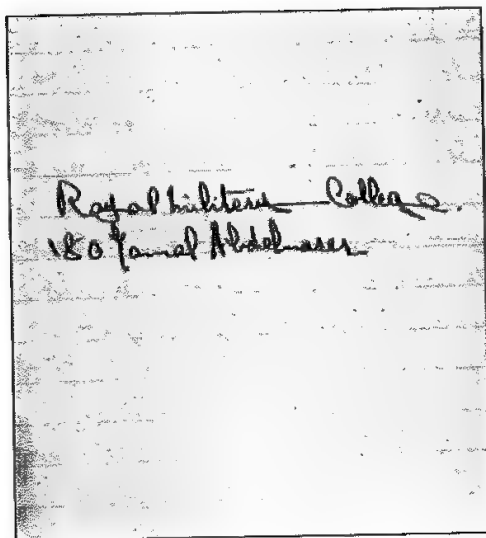 Royal military College.
180 Gamal Abdelnasser